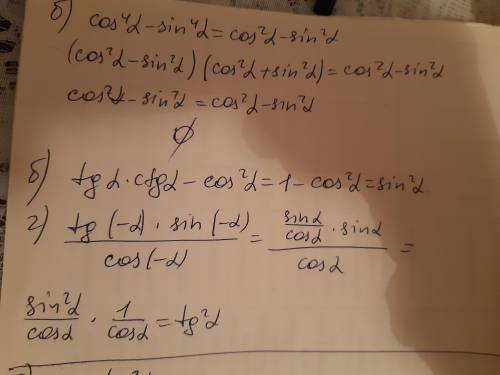 б) cos⁴α - sin⁴α = cos²α - sin²α
(cos²α - sin²α) (cos²α + sin²α) = cos²α - sin²α
cos²α - sin²α = cos²α - sin²α
∅
б) tgα · ctgα - cos²α = 1 - cos²α = sin²α
г) tg(-α) · sin(-α) / cos(-α) = sinα/cosα · sinα / cosα =
sin²α/cosα · 1/cosα = tg²α